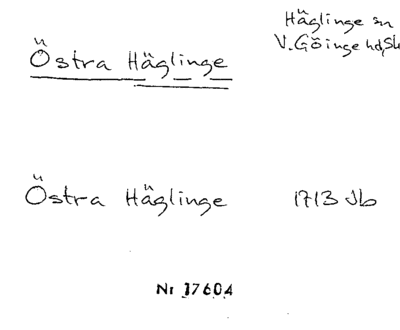 Häglinge sn
V. Göinge hd, Sk
Östra Häglinge
Östra Häglinge 1713 Jb
Nr 17604